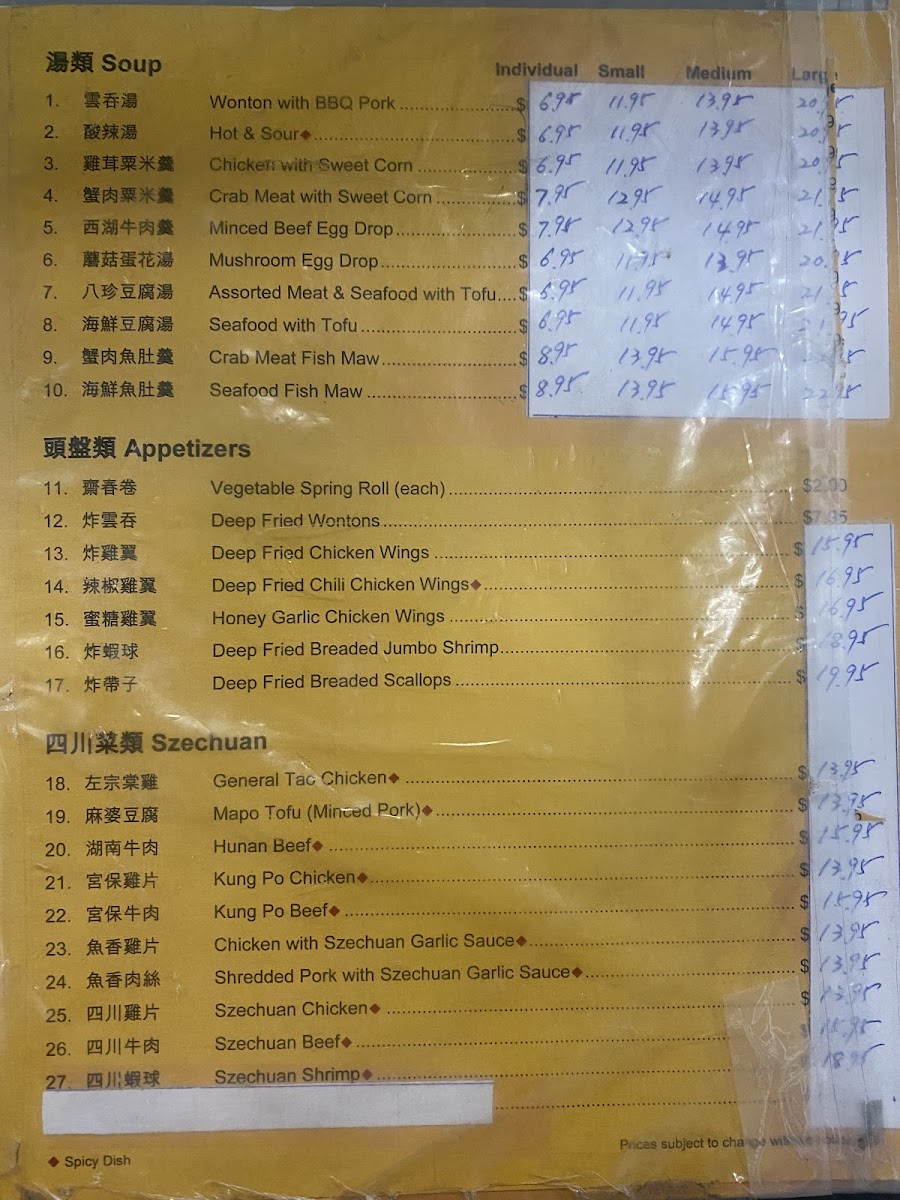 湯類 Soup Individual Small Medium Large
1. 雲吞湯 Wonton with BBQ Pork $ 6.95 11.95 13.95
2. 酸辣湯 Hot & Sour◆ $ 6.95 11.95 13.95
3. 雞茸粟米羹 Chicken with Sweet Corn $ 6.95 11.95 13.95
4. 蟹肉粟米羹 Crab Meat with Sweet Corn $ 7.95 12.95 14.95
5. 西湖牛肉羹 Minced Beef Egg Drop $ 7.95 12.95 14.95
6. 蘑菇蛋花湯 Mushroom Egg Drop $ 6.95 11.95 13.95
7. 八珍豆腐湯 Assorted Meat & Seafood with Tofu $ 6.95 11.95 14.95
8. 海鮮豆腐湯 Seafood with Tofu $ 6.95 11.95 14.95
9. 蟹肉魚肚羹 Crab Meat Fish Maw $ 8.95 13.95 15.95
10. 海鮮魚肚羹 Seafood Fish Maw $ 8.95 13.95 15.95 22.95
頭盤類 Appetizers
11. 齋春卷 Vegetable Spring Roll (each) $2.00
12. 炸雲吞 Deep Fried Wontons $7.95
13. 炸雞翼 Deep Fried Chicken Wings $ 15.95
14. 辣椒雞翼 Deep Fried Chili Chicken Wings◆ $ 16.95
15. 蜜糖雞翼 Honey Garlic Chicken Wings $ 16.95
16. 炸蝦球 Deep Fried Breaded Jumbo Shrimp $ 18.95
17. 炸帶子 Deep Fried Breaded Scallops $ 19.95
四川菜類 Szechuan
18. 左宗棠雞 General Tao Chicken◆ $ 13.95
19. 麻婆豆腐 Mapo Tofu (Minced Pork)◆ $ 13.95
20. 湖南牛肉 Hunan Beef◆ $ 15.95
21. 宮保雞片 Kung Po Chicken◆ $ 13.95
22. 宮保牛肉 Kung Po Beef◆ $ 15.95
23. 魚香雞片 Chicken with Szechuan Garlic Sauce◆ $ 13.95
24. 魚香肉絲 Shredded Pork with Szechuan Garlic Sauce◆ $ 13.95
25. 四川雞片 Szechuan Chicken◆ $ 13.95
26. 四川牛肉 Szechuan Beef◆ $ 15.95
27. 四川蝦球 Szechuan Shrimp◆ $ 18.95
Prices subject to change without
◆ Spicy Dish